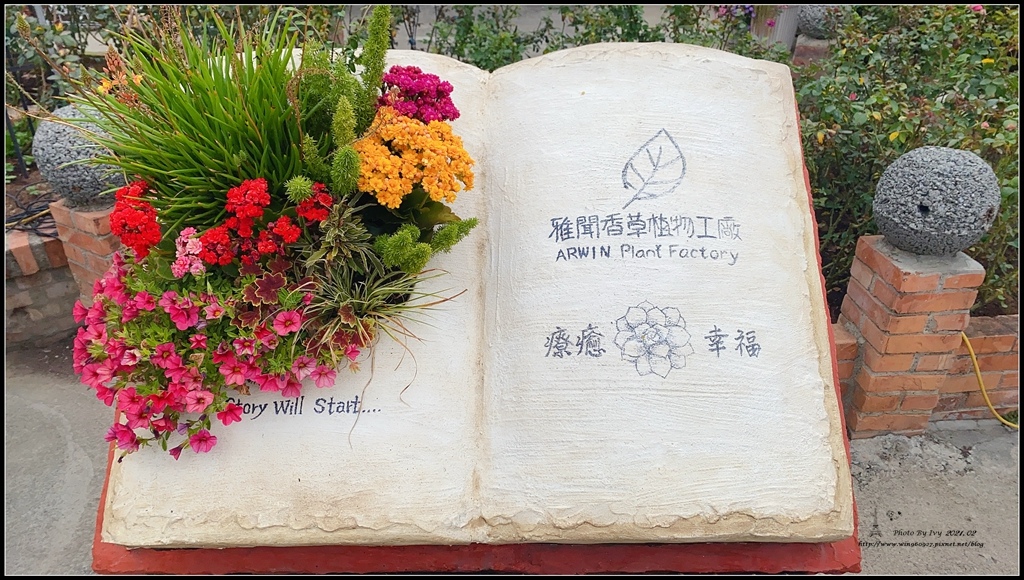 Story Will Start....
雅聞香草植物工廠
ARWIN Plant Factory
療癒 幸福
Photo By Ivy 2021.02
http://www.win960907.pixnet.net/blog